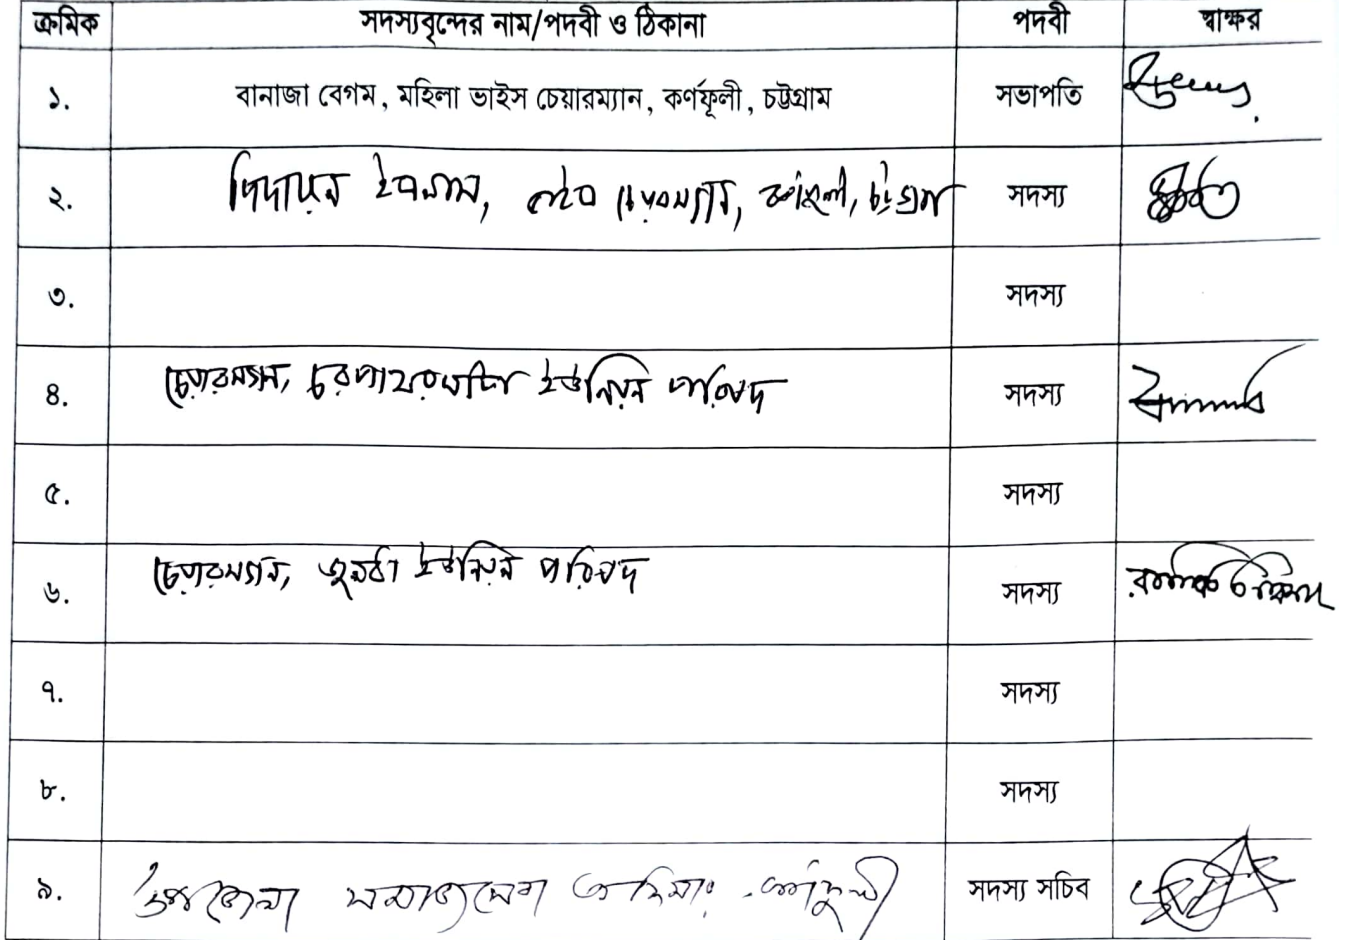 ক্রমিক সদস্যবৃন্দের নাম/পদবী ও ঠিকানা পদবী স্বাক্ষর
১. বানাজা বেগম, মহিলা ভাইস চেয়ারম্যান, কর্ণফূলী, চট্টগ্রাম সভাপতি
২. দিদারুল ইসলাম, ভাইস চেয়ারম্যান, কর্ণফুলী, চট্টগ্রাম সদস্য
৩. সদস্য
৪. চেয়ারম্যান, চরপাথরঘাটা ইউনিয়ন পরিষদ সদস্য
৫. সদস্য
৬. চেয়ারম্যান, জুলধা ইউনিয়ন পরিষদ সদস্য
৭. সদস্য
৮. সদস্য
৯. উপজেলা সমাজসেবা অফিসার, কর্ণফুলী সদস্য সচিব